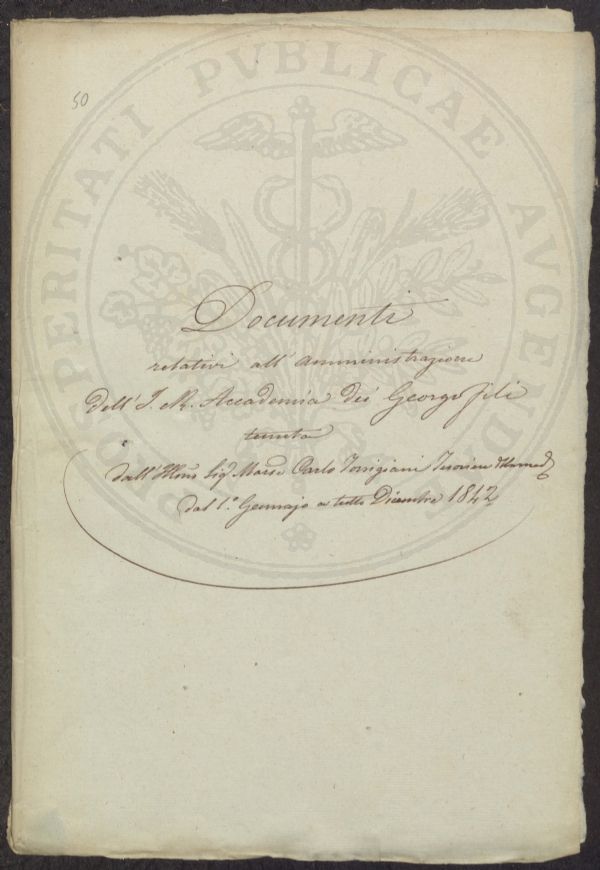 50
PROSPERITATI PVBLICAE AVGENDAE
Documenti
relativi all' Amministrazione
dell' I. R. Accademia dei Georgofili
tenuta
dall' Illmo Sigr Marse Carlo Torrigiani Tesoriere
dal 1º Gennajo a tutto Dicembre 1842